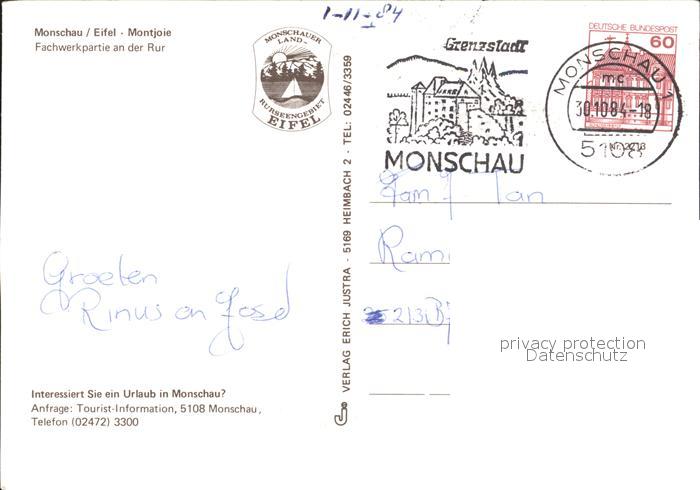 1-11-84
Monschau / Eifel - Montjoie
Fachwerkpartie an der Rur
MONSCHAUER
LAND-
RURSEENGEBIET
EIFEL
Grenzstadt
MONSCHAU
DEUTSCHE BUNDESPOST
60
MONSCHAU 1
mc
30.10.84-18
5108
Groeten
Rinus en José
Fam
Rami
213
VERLAG ERICH JUSTRA · 5169 HEIMBACH 2 · TEL: 02446/3359
privacy protection
Datenschutz
Interessiert Sie ein Urlaub in Monschau?
Anfrage: Tourist-Information, 5108 Monschau,
Telefon (02472) 3300